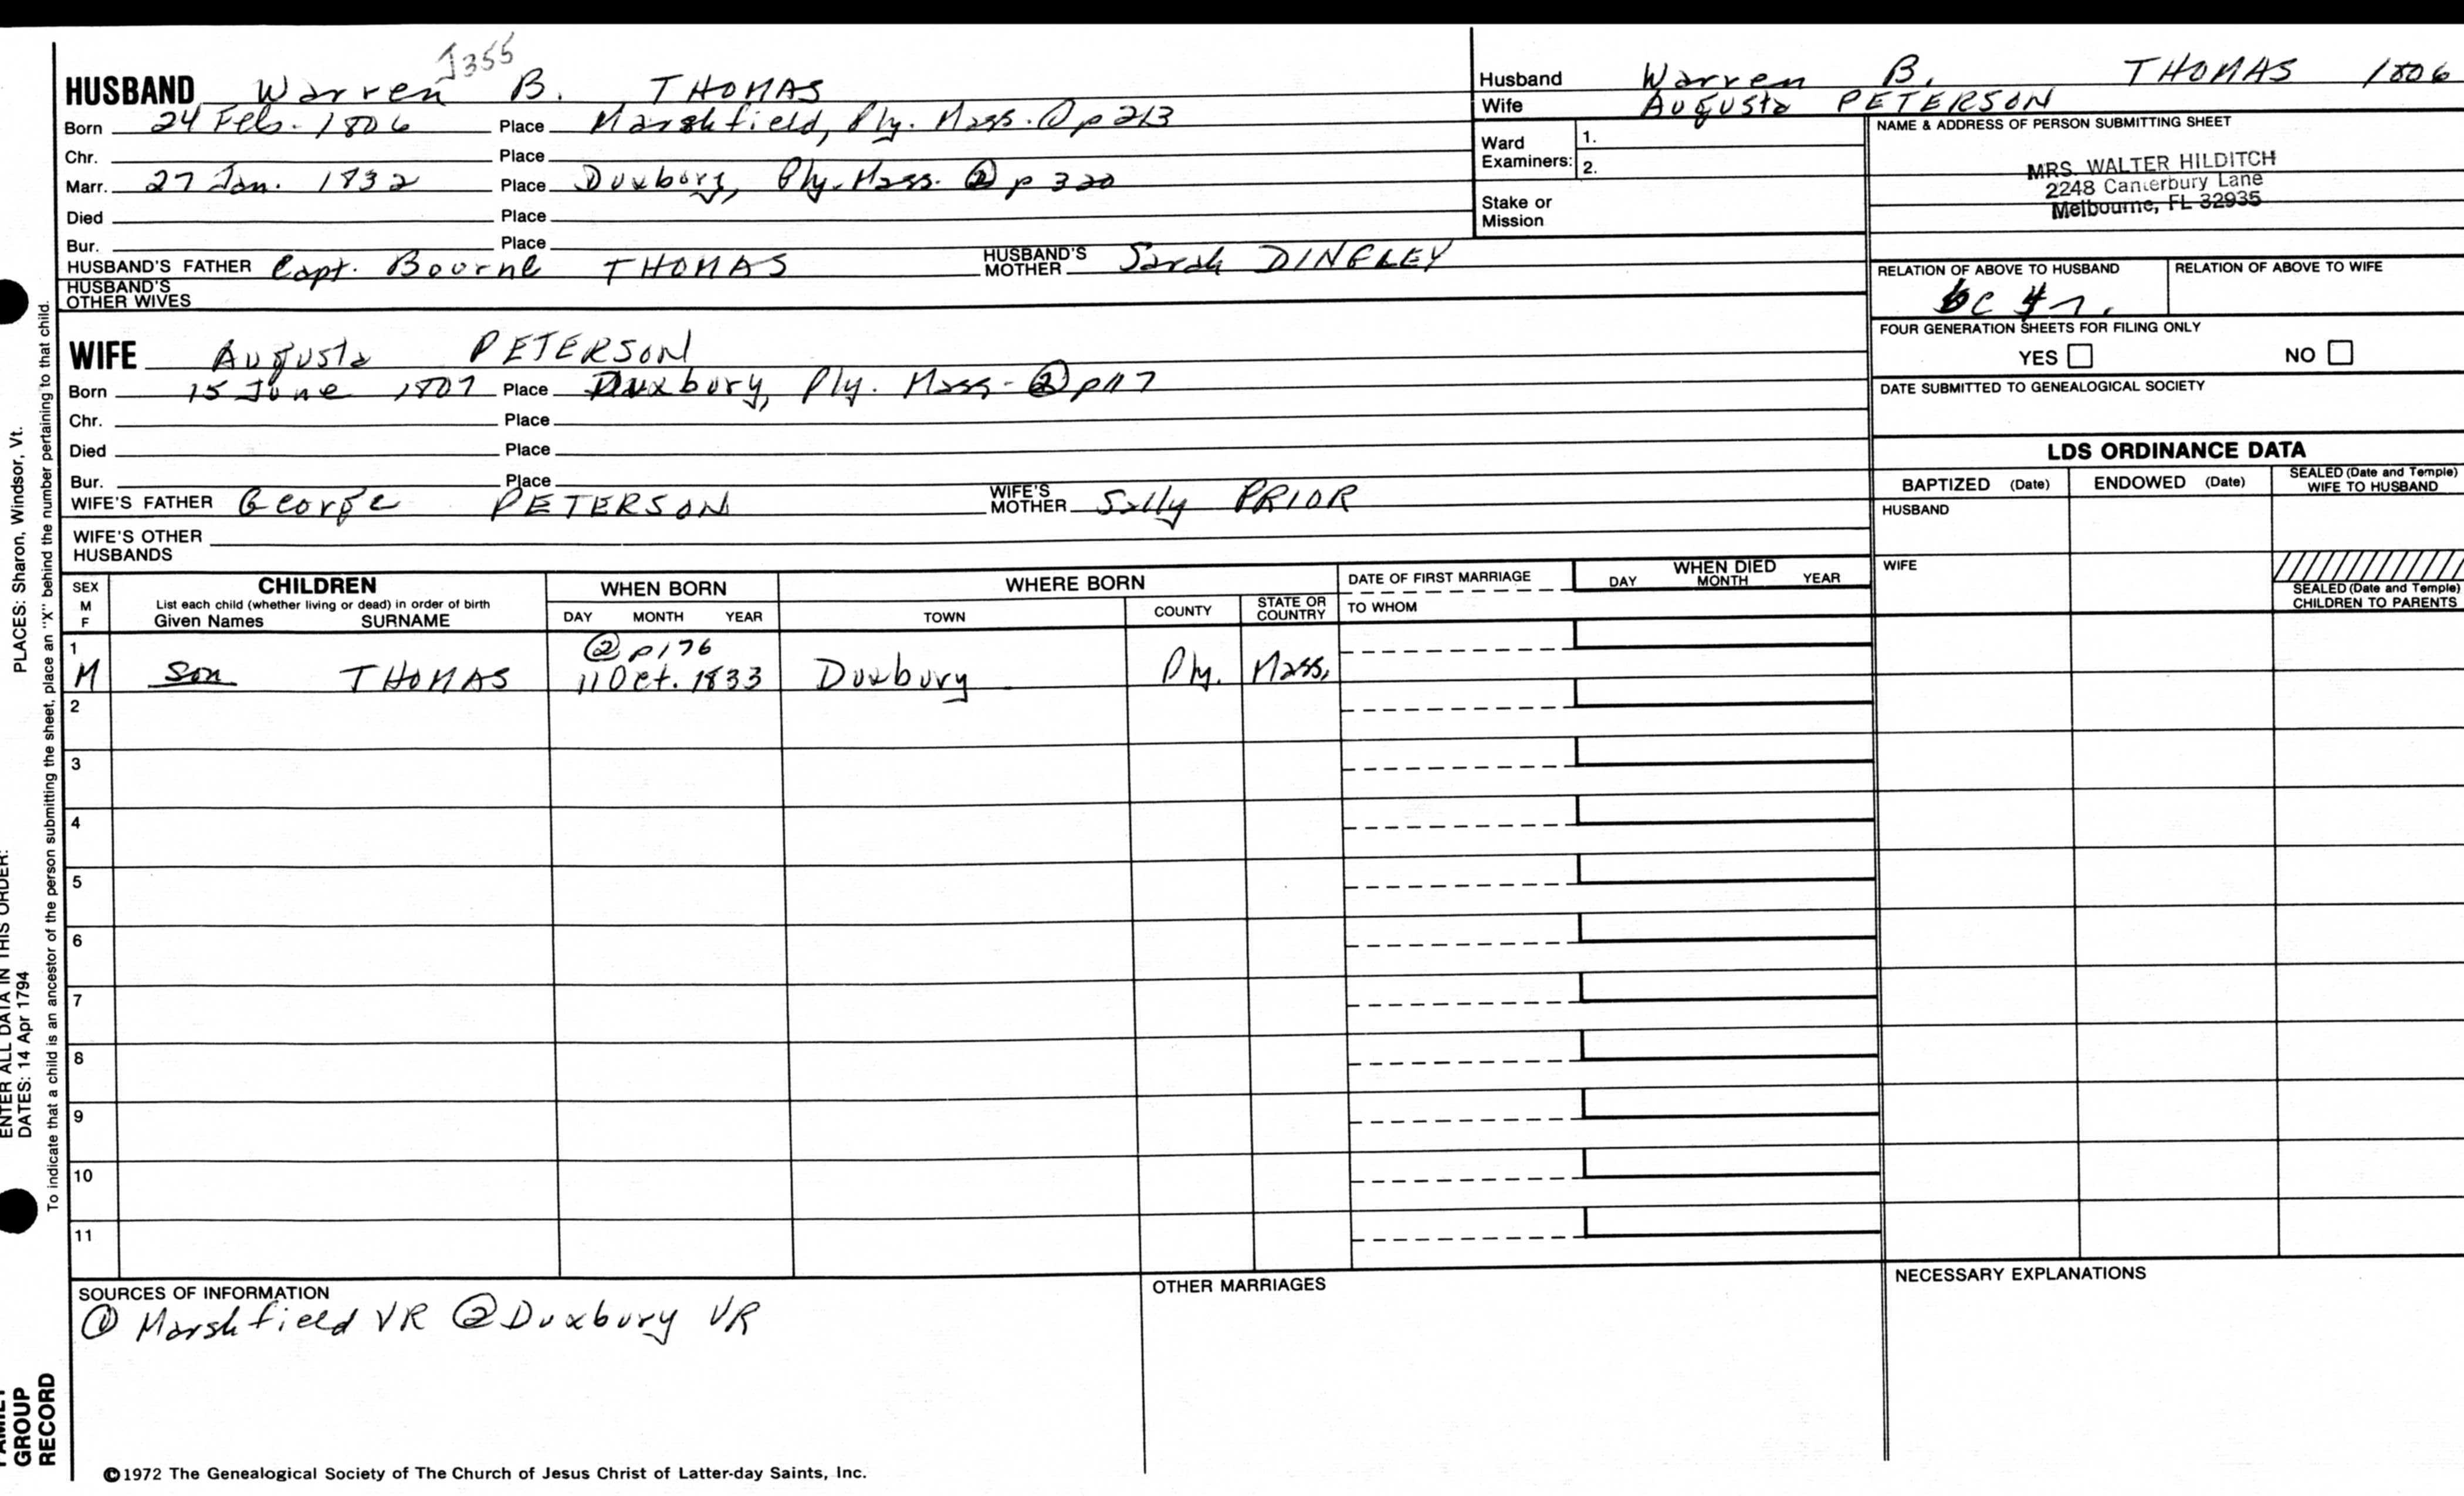 1355
HUSBAND Warren B. THOMAS
Born 24 Feb. 1806 Place Marshfield, Ply. Mass. ① p 213
Chr. Place
Marr. 27 Jan. 1832 Place Duxbury, Ply. Mass. ② p 320
Died Place
Bur. Place
HUSBAND'S FATHER Capt. Bourne THOMAS HUSBAND'S MOTHER Sarah DINGLEY
HUSBAND'S OTHER WIVES
WIFE Augusta PETERSON
Born 15 June 1807 Place Duxbury, Ply. Mass. ② p117
Chr. Place
Died Place
Bur. Place
WIFE'S FATHER George PETERSON WIFE'S MOTHER Sally PRIOR
WIFE'S OTHER HUSBANDS
Husband Warren B. THOMAS 1806
Wife Augusta PETERSON
Ward Examiners: 1.
2.
Stake or Mission
NAME & ADDRESS OF PERSON SUBMITTING SHEET
MRS. WALTER HILDITCH
2248 Canterbury Lane
Melbourne, FL 32935
RELATION OF ABOVE TO HUSBAND RELATION OF ABOVE TO WIFE
FOUR GENERATION SHEETS FOR FILING ONLY
YES NO
DATE SUBMITTED TO GENEALOGICAL SOCIETY
LDS ORDINANCE DATA
BAPTIZED (Date) ENDOWED (Date) SEALED (Date and Temple) WIFE TO HUSBAND
HUSBAND
WIFE
SEALED (Date and Temple) CHILDREN TO PARENTS
SEX M F
CHILDREN
List each child (whether living or dead) in order of birth
Given Names SURNAME
WHEN BORN
DAY MONTH YEAR
WHERE BORN
TOWN COUNTY STATE OR COUNTRY
DATE OF FIRST MARRIAGE
TO WHOM
WHEN DIED
DAY MONTH YEAR
1 ② p176
M Son THOMAS 11 Oct. 1833 Duxbury Ply. Mass.
2
3
4
5
6
7
8
9
10
11
SOURCES OF INFORMATION
① Marshfield VR ② Duxbury VR
OTHER MARRIAGES
NECESSARY EXPLANATIONS
©1972 The Genealogical Society of The Church of Jesus Christ of Latter-day Saints, Inc.
PLACES: Sharon, Windsor, Vt.
ENTER ALL DATA IN THIS ORDER:
DATES: 14 Apr 1794
To indicate that a child is an ancestor of the person submitting the sheet, place an "X" behind the number pertaining to that child.
FAMILY
GROUP
RECORD